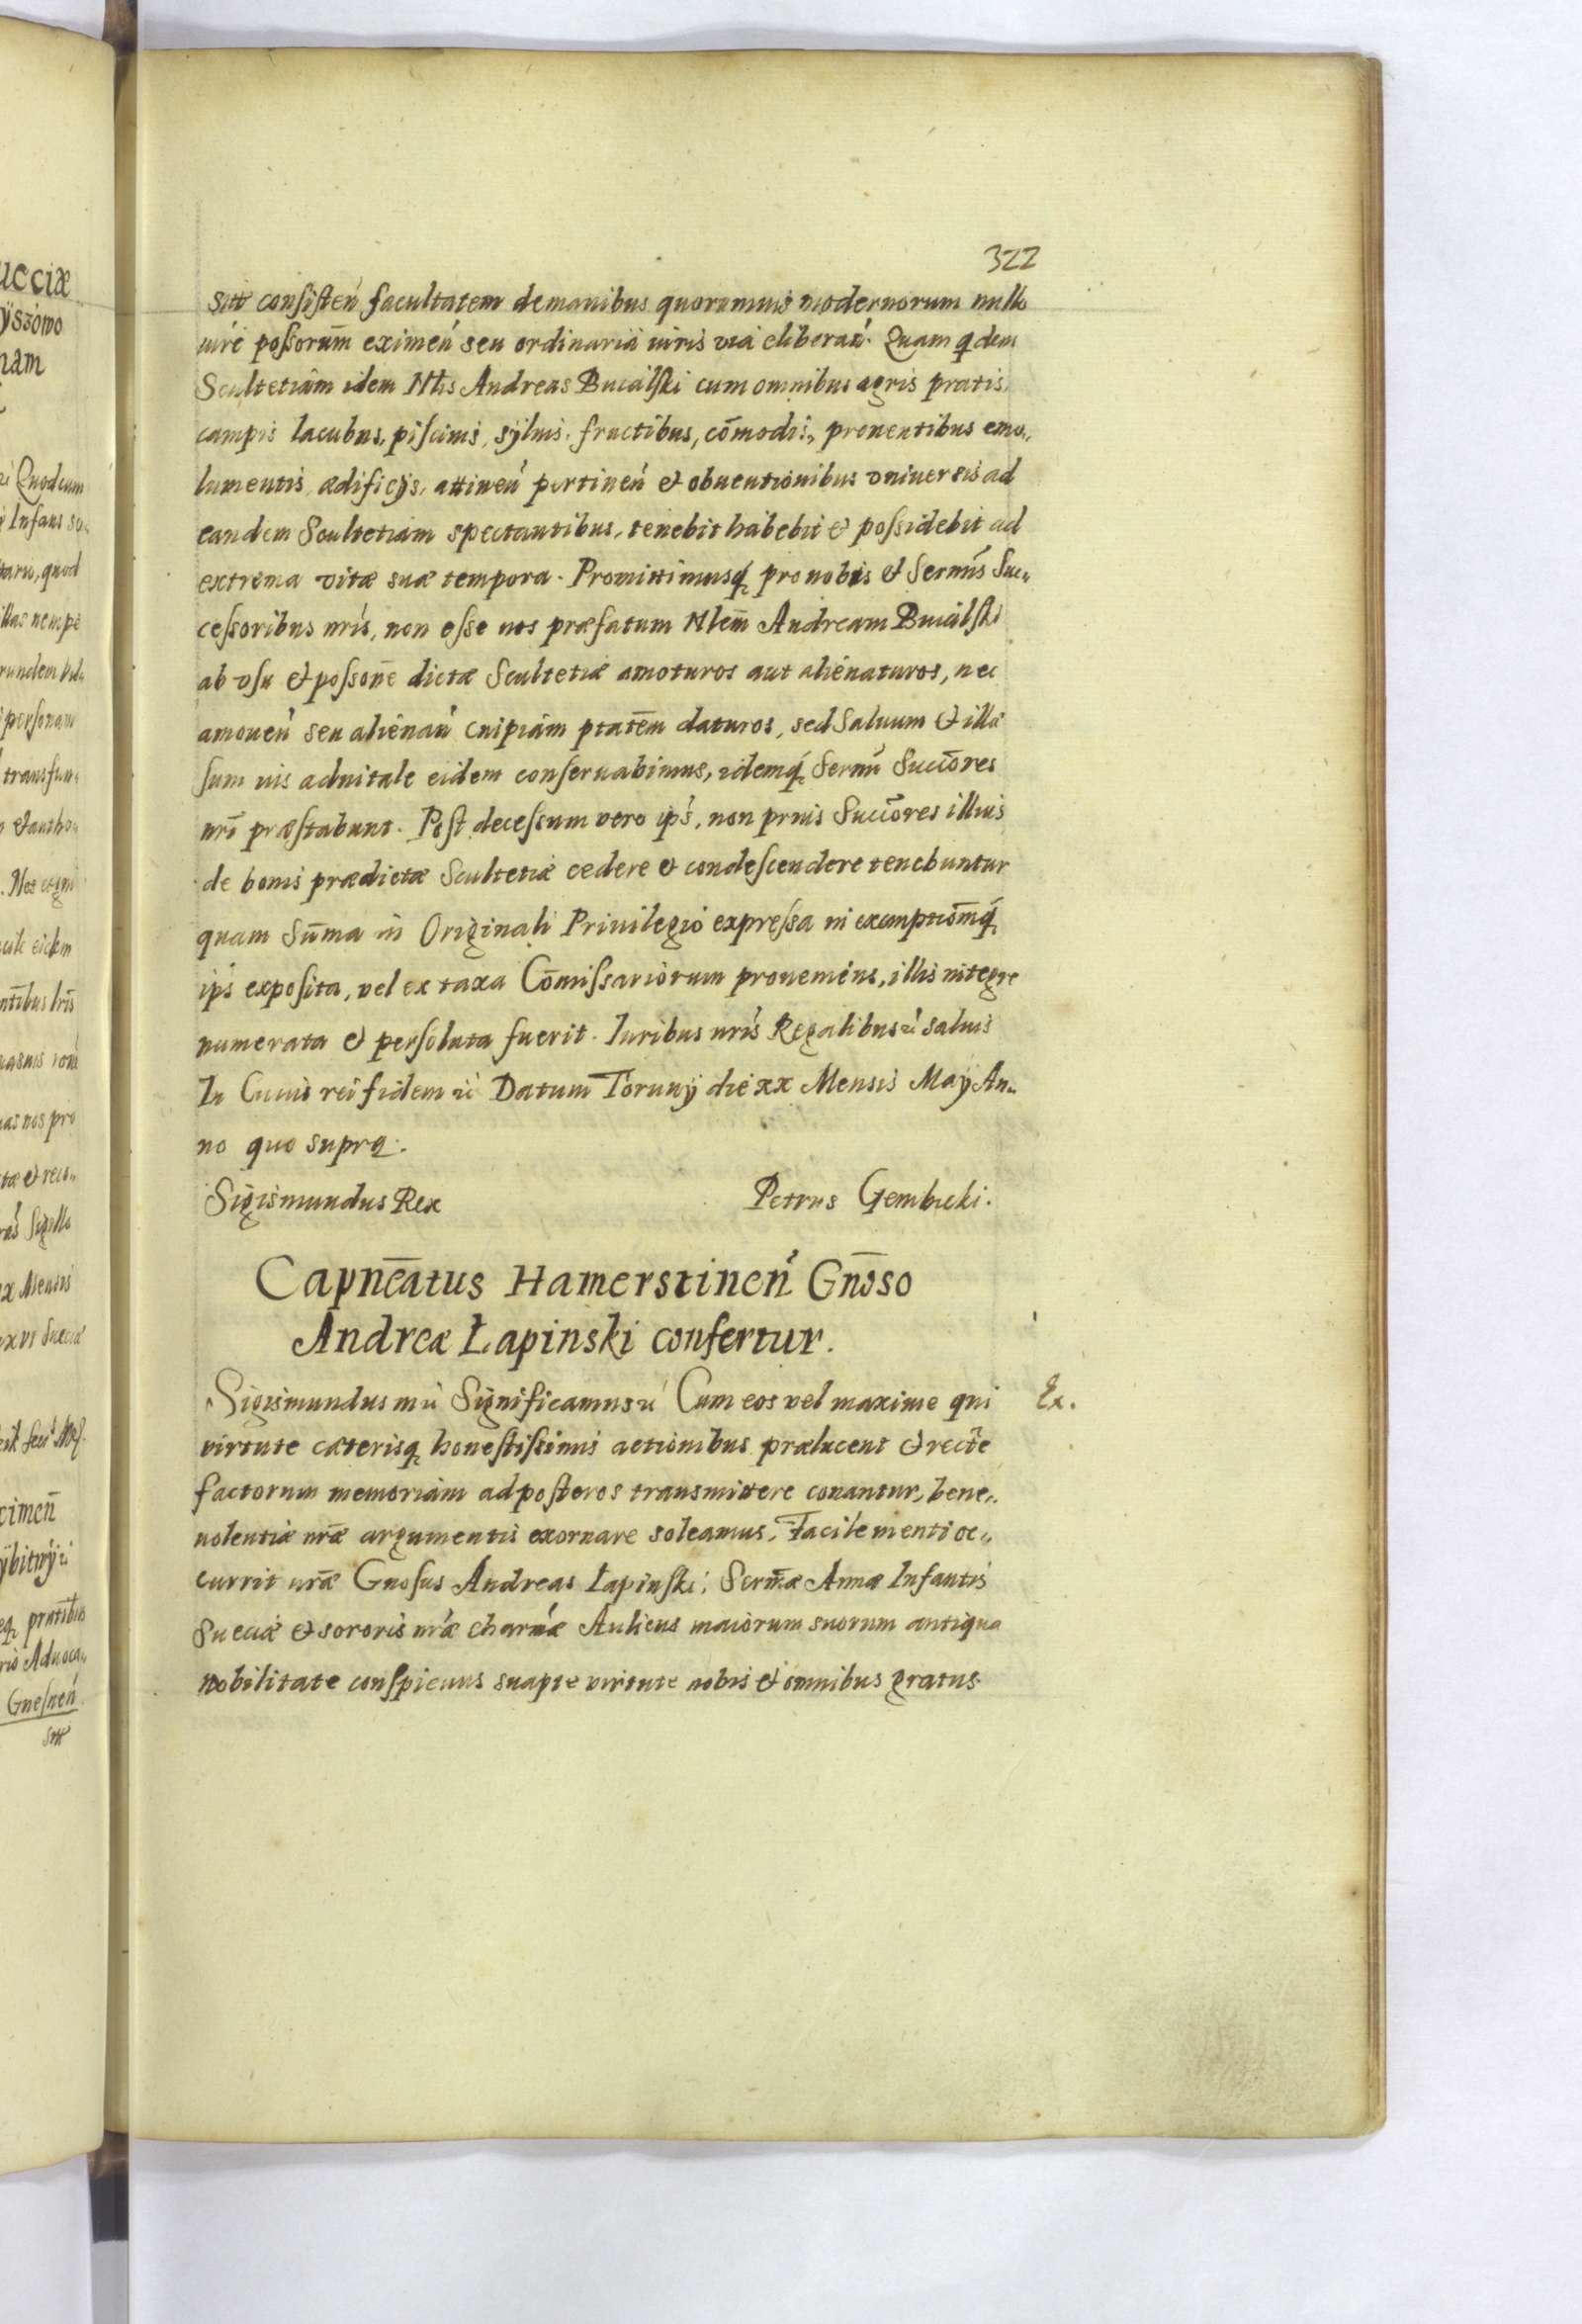 322
sitt consisten facultatem demanibus quorumuis modernorum nullo
iure possorum eximen seu ordinaria iuris via eliberan. Quam qdem
Scultetiam idem Nlis Andreas Bucalski cum omnibus agris pratis,
campis lacubus, piscinis, syluis, fructibus, comodis, prouentibus emo„
lumentis ædificijs, attinen pertinen et obuentionibus vniuersis ad
eandem Scultetiam spectantibus, tenebit habebit et possidebit ad
extrema vitæ suæ tempora. Promittimusq pro nobis et Sermis Suc„
cessoribus nris, non esse nos præfatum Nlem Andream Bucalski
ab vsu et possone dictæ Scultetiæ amoturos aut alienaturos, nec
amouen seu alienan cuipiam ptatem daturos, sed Saluum et illæ
sum ius aduitale eidem conseruabimus, idemq Sermi Succores
nri præstabunt. Post decessum vero ips, non prius Succores illius
de bonis prædictæ Scultetiæ cedere et condescendere tenebuntur
quam suma in Originali Priuilegio expressa in exemptiomq
ips exposita, vel ex taxa Comissariorum proueniens, illis integre
numerata et persoluta fuerit. Iuribus nris Regalibus rc saluis
In Cuius rei fidem rc Datum Toruny die xx Mensis May An„
no quo supra.
Sigismundus Rex Petrus Gembicki.
Capneatus Hamerstinen Gnoso
Andreæ Łapinski confertur.
Sigismundus mu Significamus rc Cum eos vel maxime qui Ex.
virtute cæterisq honestissimis actionibus prælucent et recte
factorum memoriam ad posteros transmittere conantur, bene„
uolentiæ nræ argumentis exornare soleamus, Facile menti oc„
currit nræ Gnosus Andreas Łapinski, Sermæ Annæ Infantis
Sueciæ et sororis nræ charmæ Aulicus maiorum suorum antiqua
nobilitate conspicuus suapte virtute nobis et omnibus gratus.